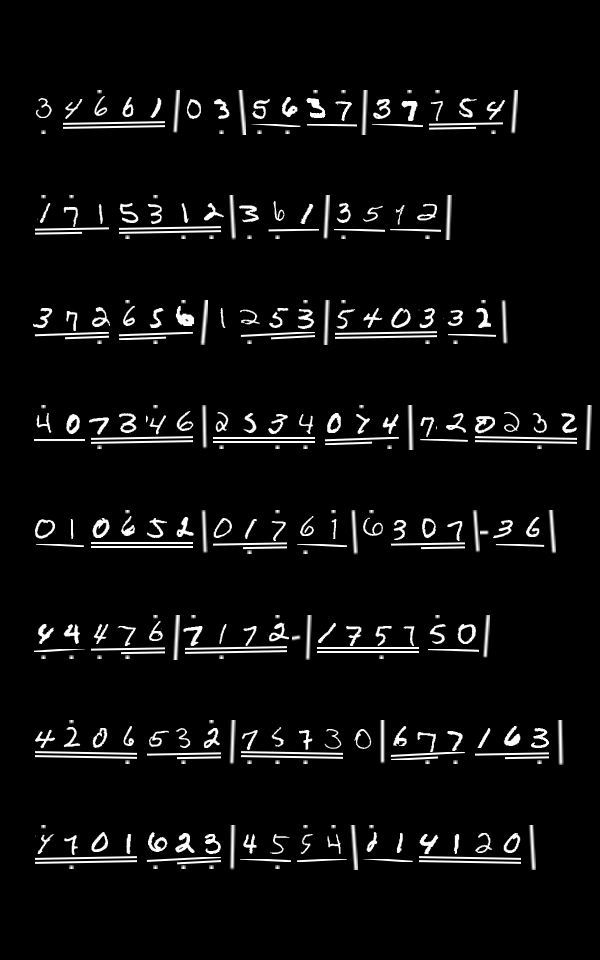 3 4 6 6 1 | 0 3 | 5 6 3 7 | 3 7 7 5 4 |
1 7 1 5 3 1 2 | 3 6 1 | 3 5 1 2 |
3 7 2 6 5 6 | 1 2 5 3 | 5 4 0 3 3 2 |
4 0 7 3 4 6 | 2 5 3 4 0 7 4 | 7 2 0 2 3 2 |
0 1 0 6 5 2 | 0 1 7 6 1 | 6 3 0 7 | - 3 6 |
4 4 4 7 6 | 7 1 7 2 - | 1 7 5 7 5 0 |
4 2 0 6 5 3 2 | 7 5 7 3 0 | 6 7 7 1 6 3 |
4 7 0 1 6 2 3 | 4 5 5 4 | 1 4 1 2 0 |